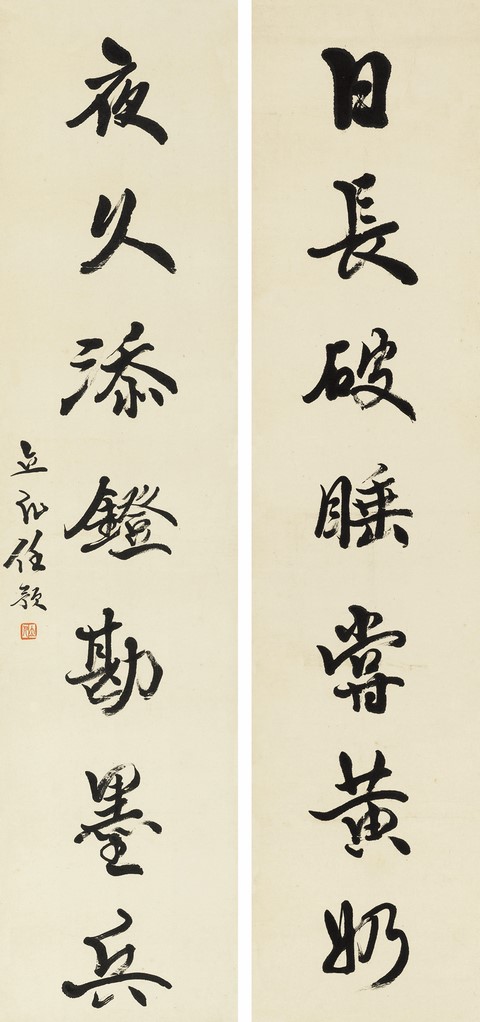 日長破睡嘗黃奶
夜久添鐙勘墨兵
立凡任預